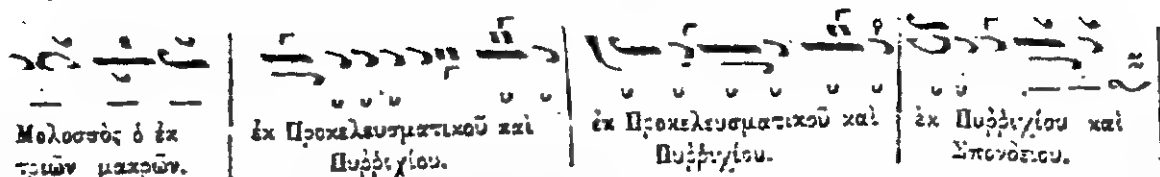 Μολοσσὸς ὁ ἐκ
τριῶν μακρῶν.
ἐκ Προκελευσματικοῦ καὶ
Πυῤῥιχίου.
ἐκ Προκελευσματικοῦ καὶ
Πυῤῥιχίου.
ἐκ Πυῤῥιχίου καὶ
Σπονδείου.